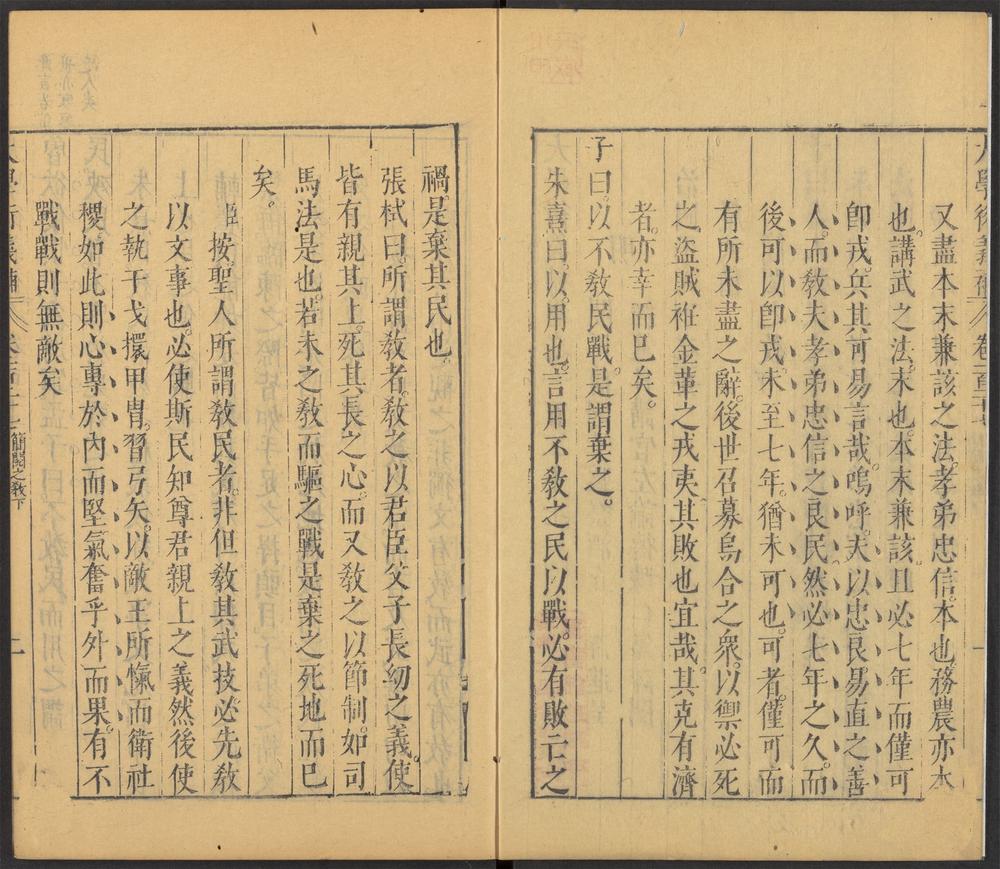 又盡本末兼該之法孝弟忠信本也務農亦本
也講武之法末也本末兼該且必七年而僅可
卽戎兵其可易言哉嗚呼夫以忠良易直之善
人而敎夫孝弟忠信之良民然必七年之久而
後可以卽戎未至七年猶未可也可者僅可而
有所未盡之辭後世召募烏合之衆以禦必死
之盜賊袵金革之戎夷其敗也宜哉其克有濟
者亦幸而已矣
子曰以不敎民戰是謂棄之
朱熹曰以用也言用不敎之民以戰必有敗亡之
禍是棄其民也
張栻曰所謂敎者敎之以君臣父子長幼之義使
皆有親其上死其長之心而又敎之以節制如司
馬法是也若未之敎而驅之戰是棄之死地而已
矣
臣按聖人所謂敎民者非但敎其武技必先敎
以文事也必使斯民知尊君親上之義然後使
之執干戈擐甲冑習弓矢以敵王所愾而衛社
稷如此則心專於內而堅氣奮乎外而果有不
戰戰則無敵矣
簡閱之敎下